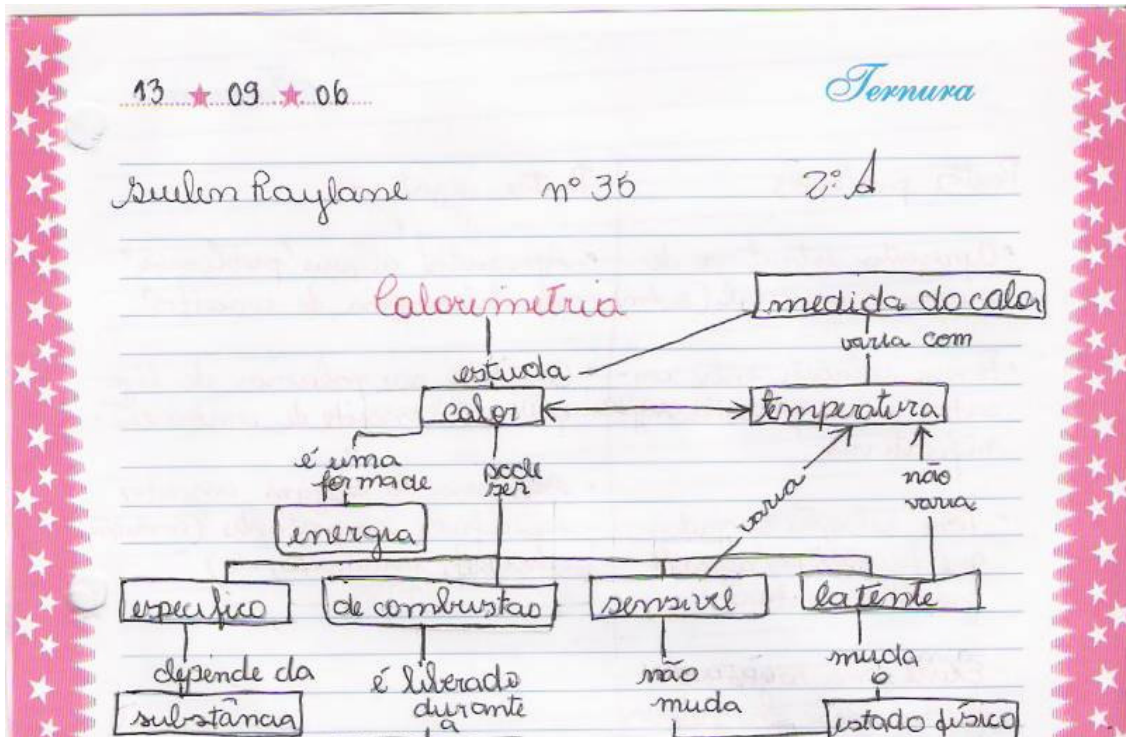 13 ★ 09 ★ 06
Ternura
Suelen Raylane nº 36 2º A
Calorimetria
medida do calor
varia com
estuda
calor
temperatura
é uma
forma de
pode
ser
varia
não
varia
energia
especifico
de combustao
sensivel
latente
depende da
é liberado
durante
a
não
muda
muda
o
substância
estado físico